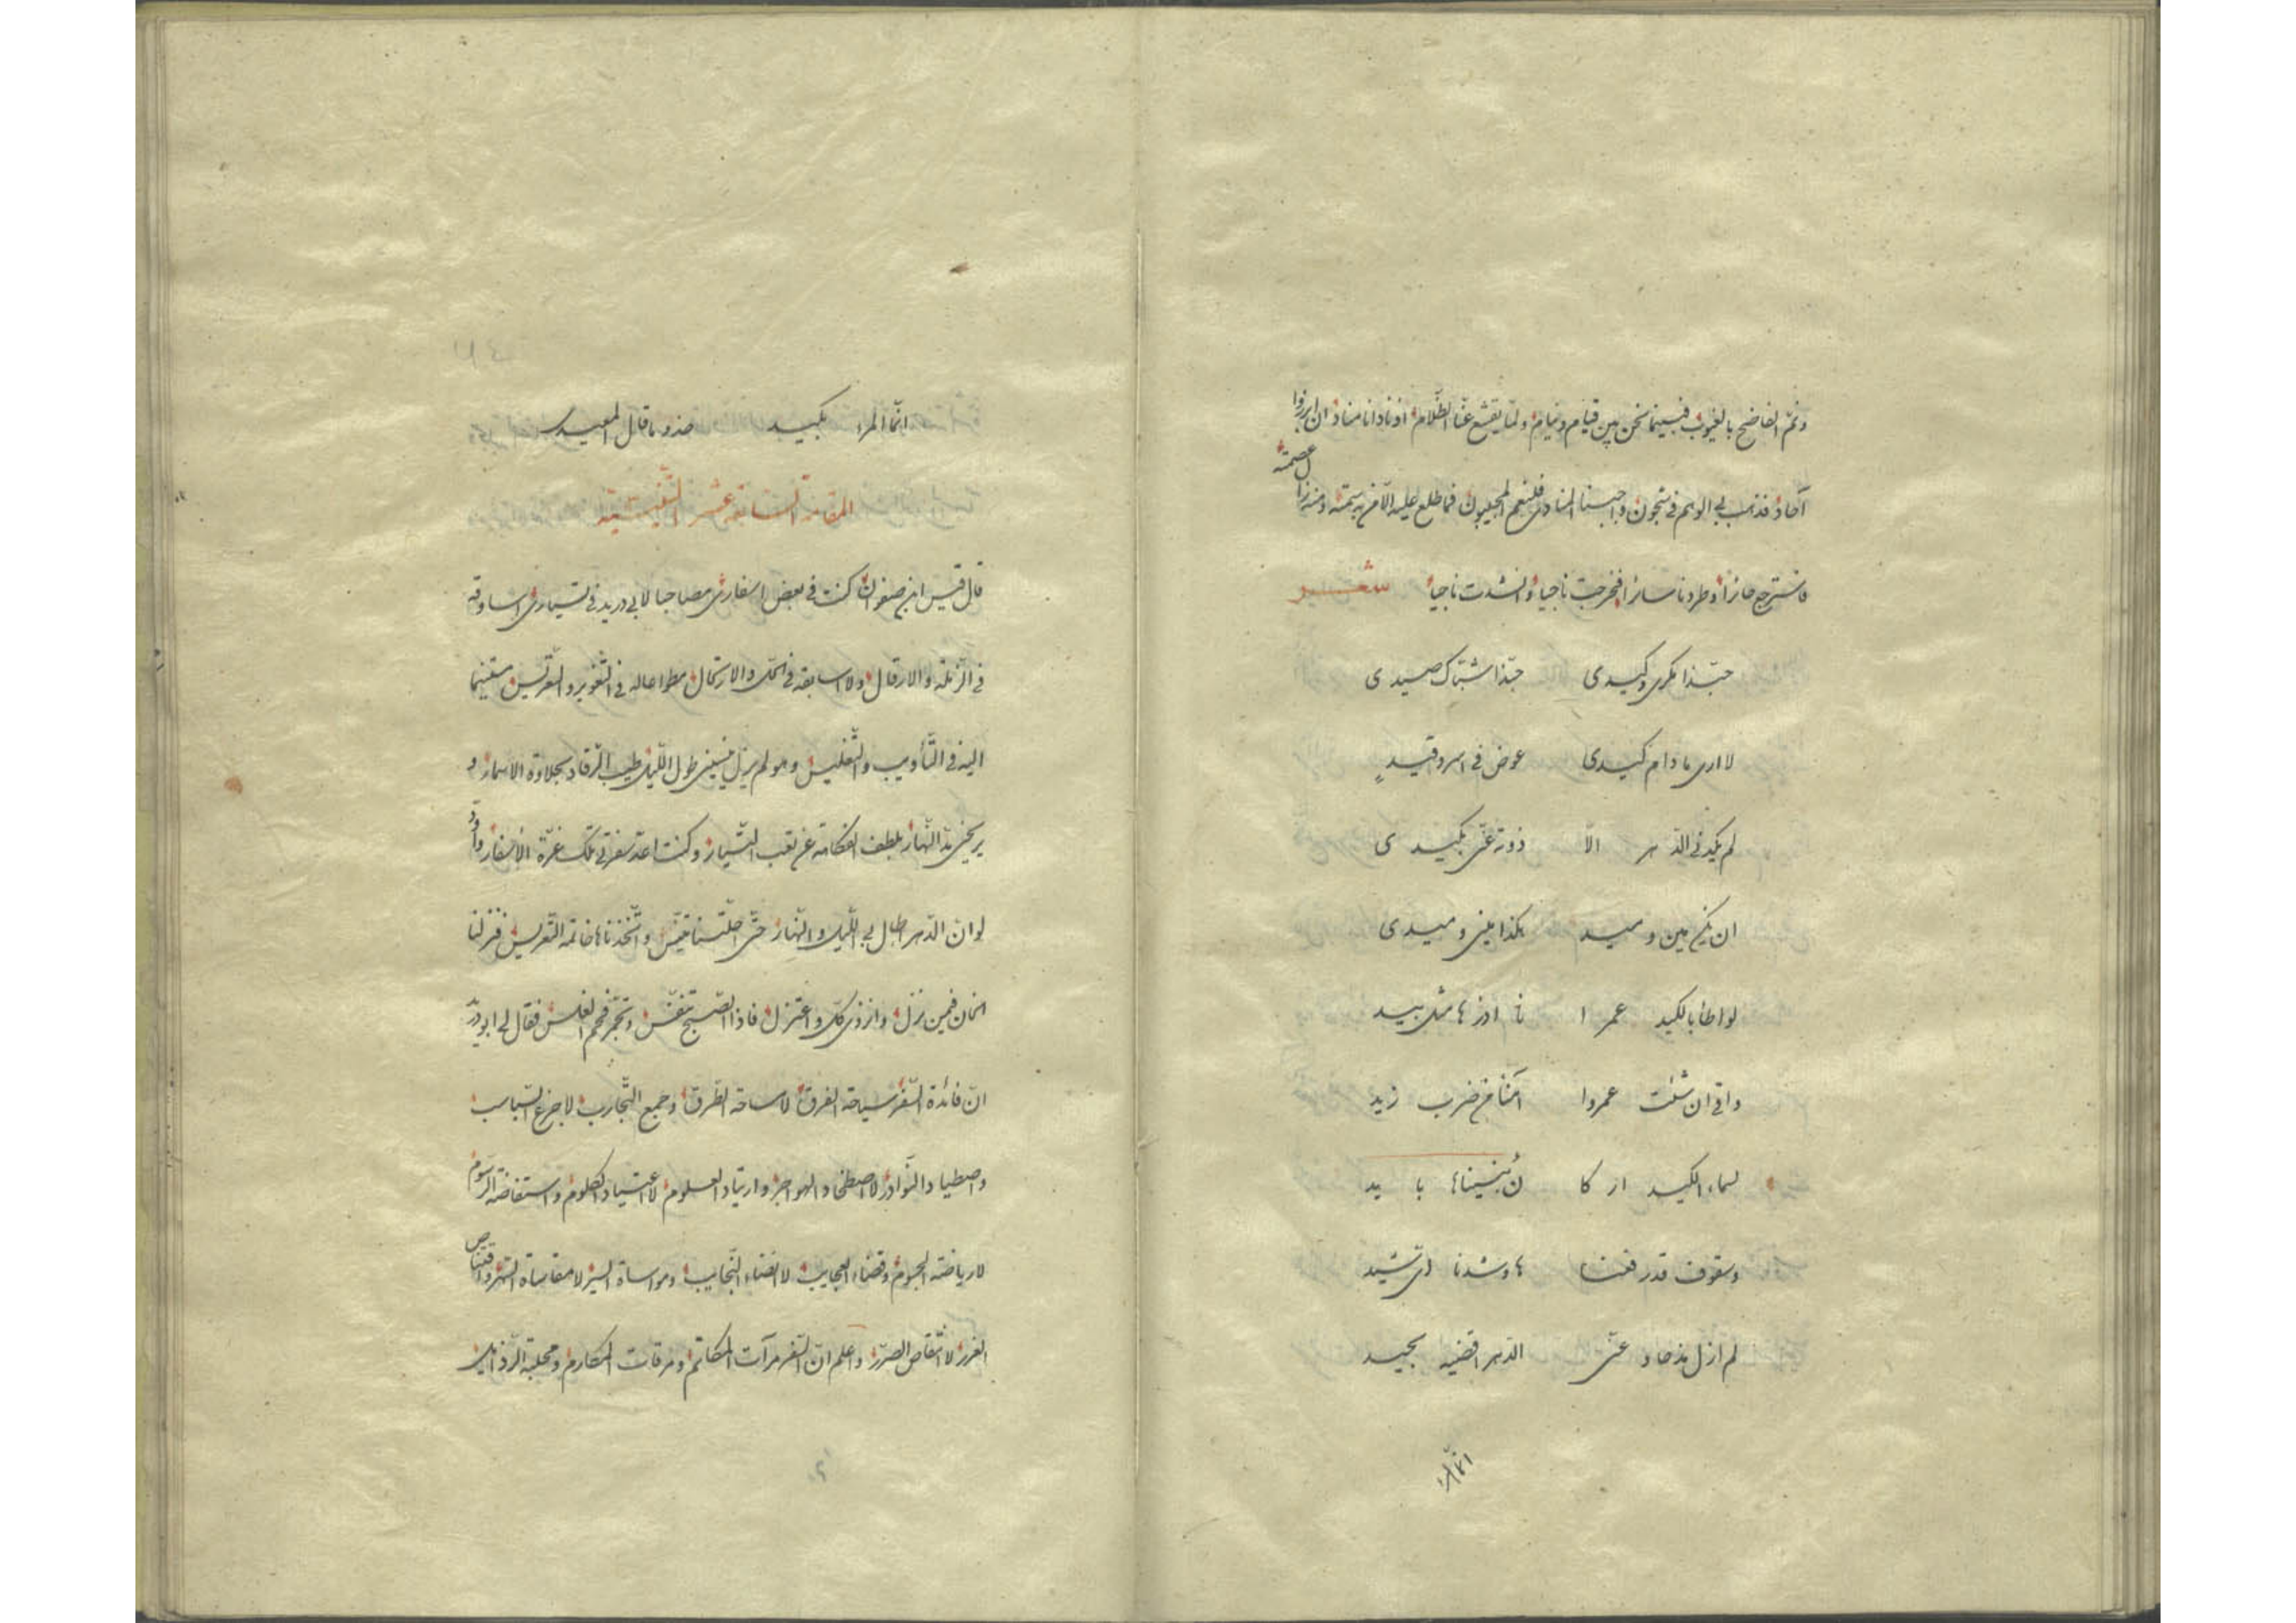 ونمّ الفاضح بالغيوب فبينما نحن بين قيام ونيام ولمّا يقشع عنّا الظّلام اذ نادانا مناد ان ابرزوا
آحاد فذهب بي الوهم في شجون واجبنا المنادى فلنعم المجيبون فما طلع عليه الّا من
عصمته
حائزا وطردنا سائرا فخرجت ناجيا وانشدت ناجيا شعر
حبّذا مكرى وكيدى حبّذا اشتباك صيدى
لا ارى ما دام كيدى عوض في اسر وقيد
لم يكد في الدّهر الّا ذو ته عنّى بكيدى
ان يكن مين وميد هكذا مينى وميدى
لو اطأ بالكيد عمرا
واقى ان شئت عمروا آمنا من ضرب زيد
لسماء الكيد اركا ن بنيناها بايد
وسقوف قد رفعنا ها وشدنا اى شيد
لم ازل مذ حاد عنّى الدّهر اقضيه بحيد
انّما المرء
انّما المرء بكيد
المقامة السّابعة عشر التّفليسيّة
قال قيس ابن صفوان كنت في بعض اسفارى مصاحبا لابي دريد في تسيارى اساوقه
في الرّتلة والارقال ولا اسابقه في الحلّ والارتحال مطواعا له في التّغوير والتّعريس مستنيما
اليه في التّأويب والتّغليس وهو لم يزل ينسينى طول اللّيل طيب الرّقاد بحلاوة الاسمار و
يريحنى مدّ النّهار بلطف الفكاهة عن تعب التّسيار وكنت اعدّ سفرتى تلك غرّة الاسفار واودّ
لو انّ الدّهر اطال بي اللّيل والنّهار حتّى احلّتنا تفليس واتّخذناها خاتمة التّعريس فنزلنا
الخان فيمن نزل وانزوى كلّ واعتزل فاذا الصّبح تنفّس فحم الغلس فقال لى ابو دريد
انّ فائدة السّفر سياحة الفرق لا مساحة الطّرق وجمع التّجارب لا جزع السّباسب
واصطياد النّوادر لا اصطخاد الهواجر وارتياد العلوم لا اعتياد الكلوم واستفاضة الرّسوم
لا رياضة الجسوم وقضاء العجايب لا انضاء النّجايب ومواساة السير لا مقاساة السّهر واقتناص
الغرر لا اقتصاص الضّرر واعلم انّ السّفر مرآت المكاتم ومرقات المكارم ومجلبة الرّذايل